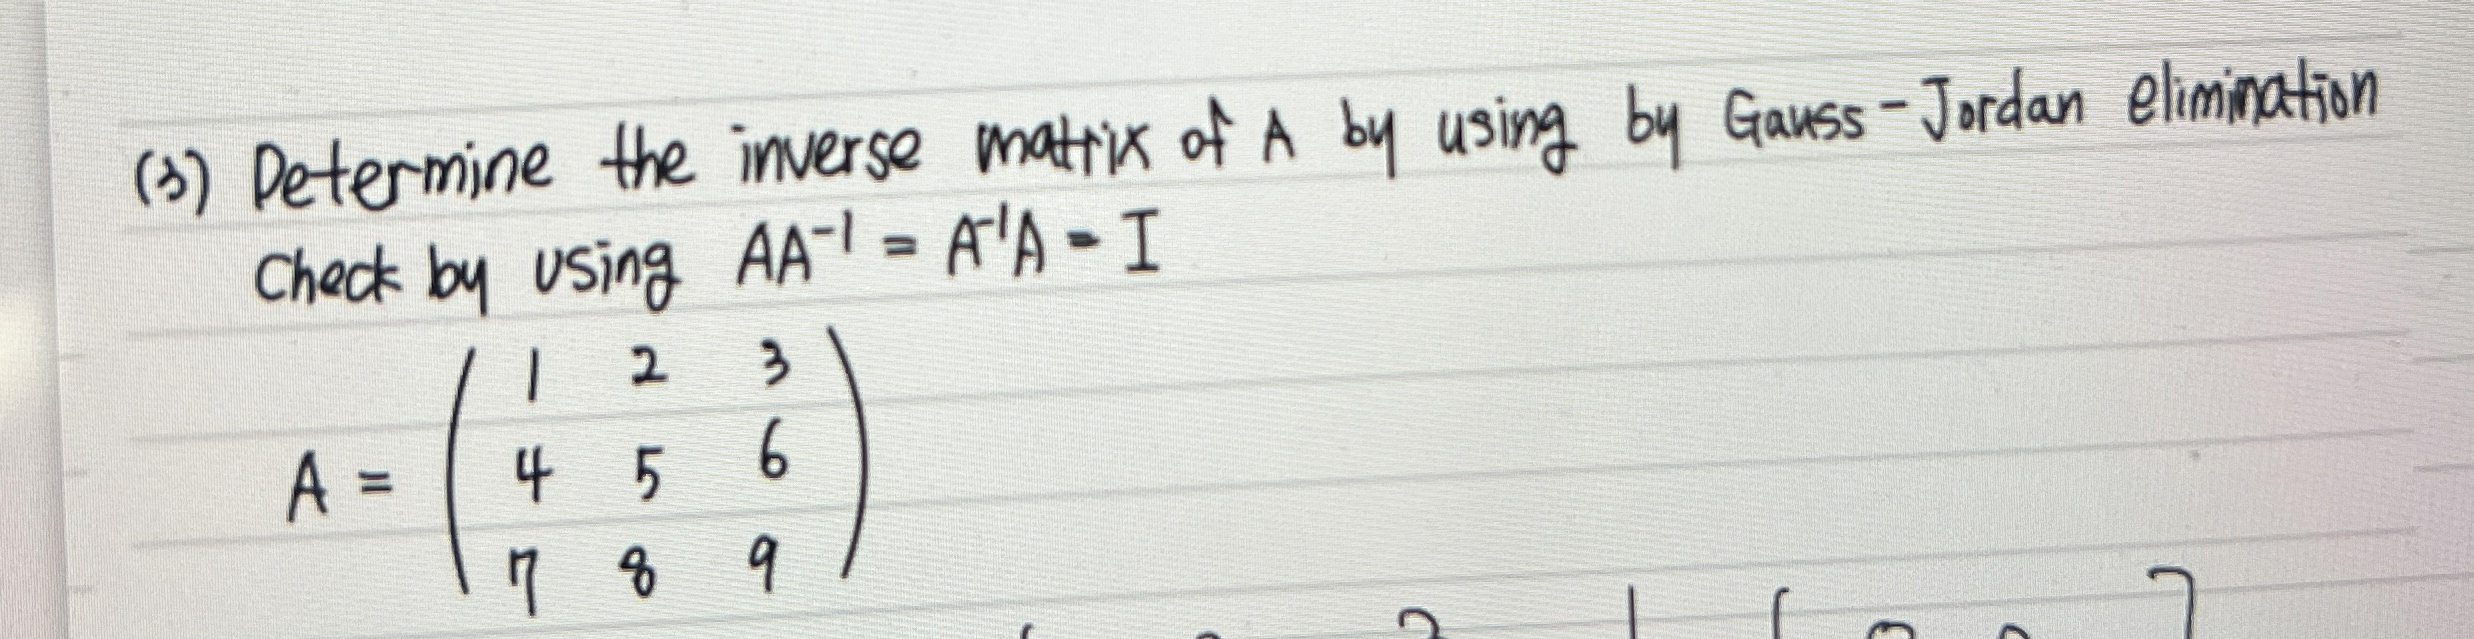 (3) Determine the inverse matrix of A by using by Gauss-Jordan elimination
Check by using AA⁻¹ = A⁻¹A = I
A = ( 1 2 3
4 5 6
7 8 9 )